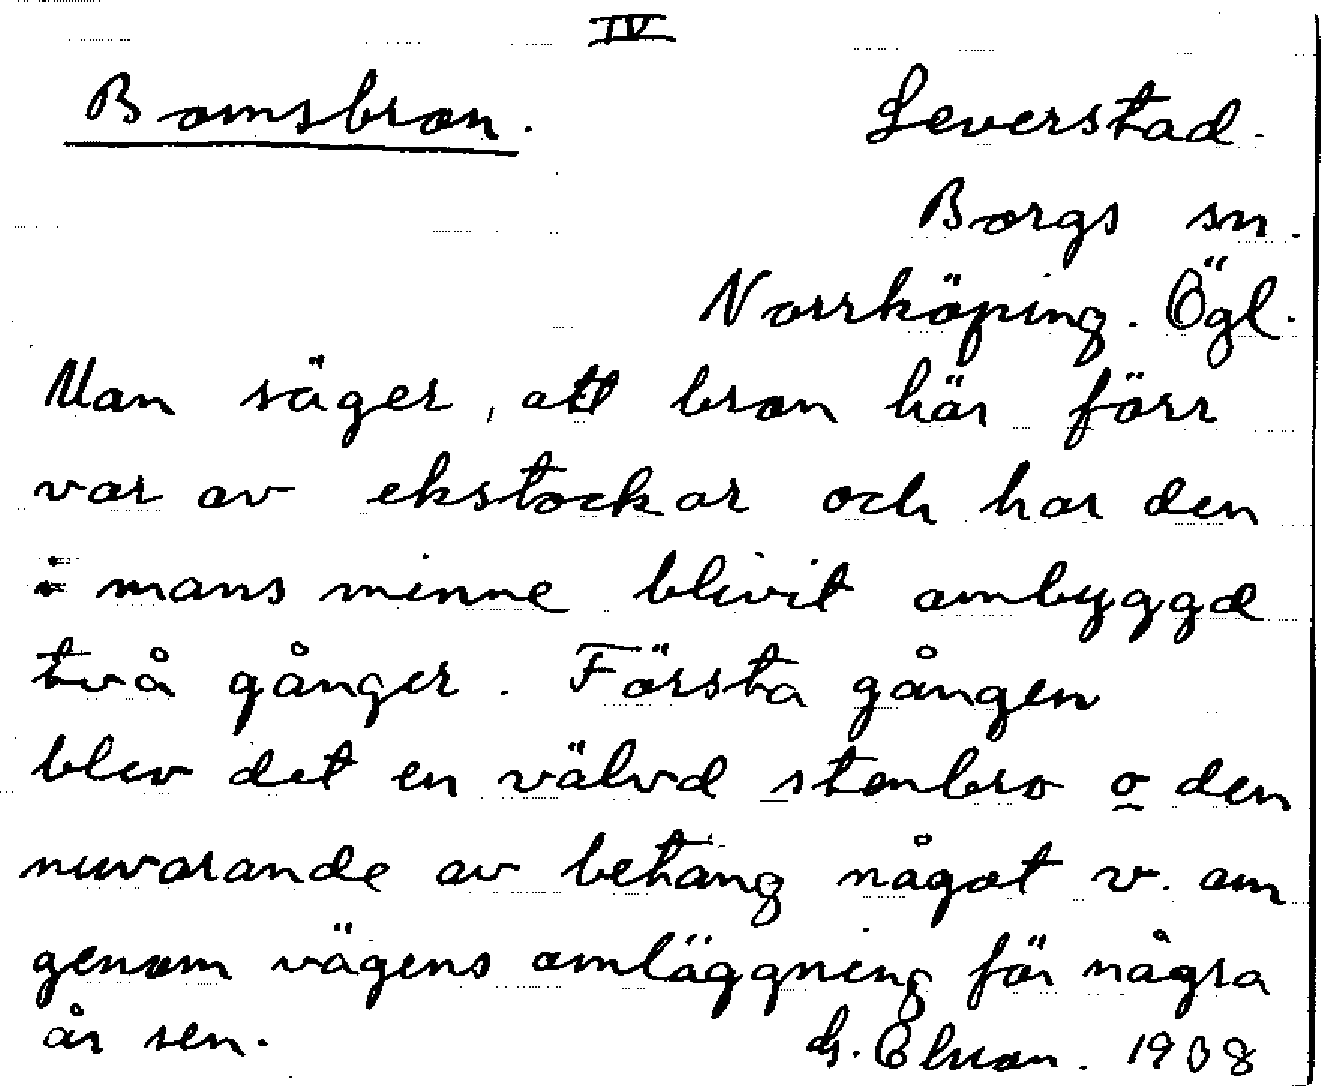 IV
Bomsbron. Leverstad.
Borgs sn.
Norrköping. Ögl.
Man säger, att bron här förr
var av ekstockar och har den
i mans minne blivit ombyggd
två gånger. Första gången
blev det en välvd stenbro o den
nuvarande av betong något v. om
genom vägens omläggning för några
år sen. G. Ekman. 1938